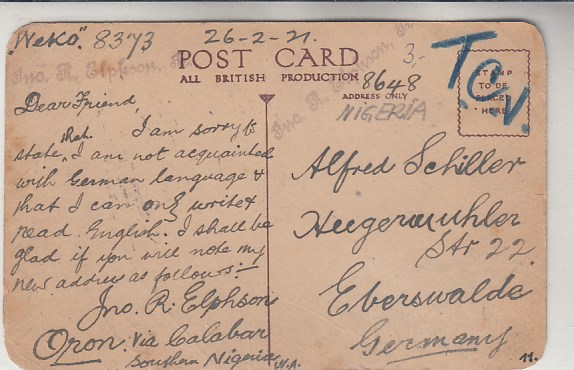 "Weko" 8373
26-2-21.
POST CARD
ALL BRITISH PRODUCTION
ADDRESS ONLY
STAMP
TO BE
PLACED
HERE
T.C.V.
3,-
8648
NIGERIA
Jno. R. Elphson, Jr
Jno. R. Elphson, Jr
Dear Friend,
I am sorry to
state, that I am not acquainted
with German language &
that I can only write &
read English. I shall be
glad if you will note my
new address as follows:-
Jno. R. Elphson
Oron. Via Calabar
Southern Nigeria W.A.
Alfred Schiller
Heegermuhler
Str 22.
Eberswalde
Germany
11.